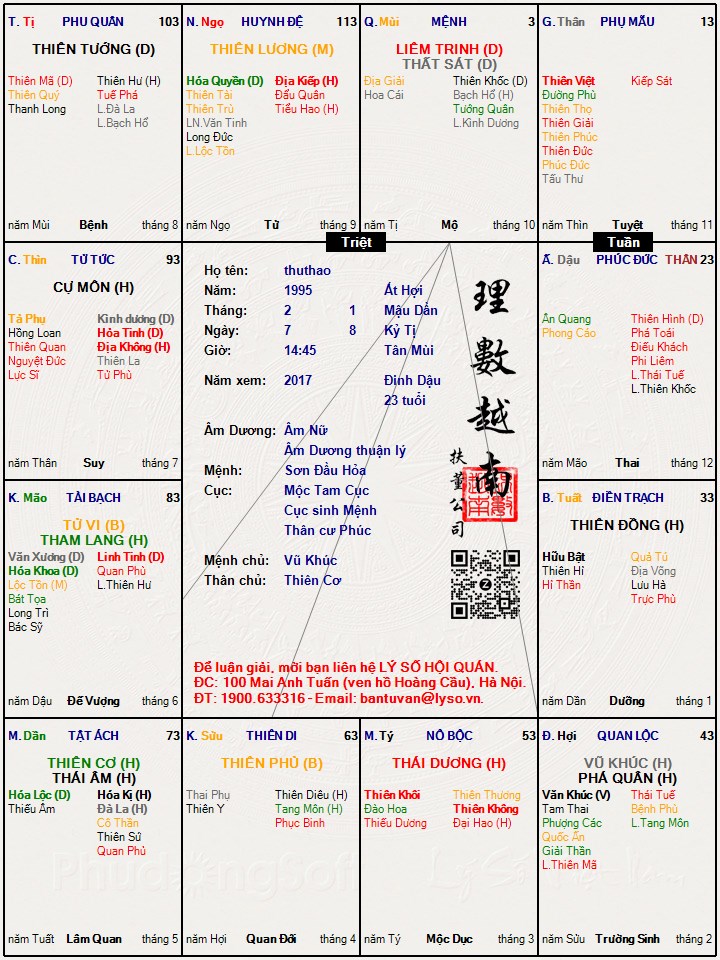 T. Tị PHU QUÂN 103
THIÊN TƯỚNG (D)
Thiên Mã (D) Thiên Hư (H)
Thiên Quý Tuế Phá
Thanh Long L.Đà La
L.Bạch Hổ
năm Mùi Bệnh tháng 8
N. Ngọ HUYNH ĐỆ 113
THIÊN LƯƠNG (M)
Hóa Quyền (D) Địa Kiếp (H)
Thiên Tài Đẩu Quân
Thiên Trù Tiểu Hao (H)
LN.Văn Tinh
Long Đức
L.Lộc Tồn
năm Ngọ Tử tháng 9
Q. Mùi MỆNH 3
LIÊM TRINH (D)
THẤT SÁT (D)
Địa Giải Thiên Khốc (D)
Hoa Cái Bạch Hổ (H)
Tướng Quân
L.Kình Dương
năm Tị Mộ tháng 10
G. Thân PHỤ MẪU 13
Thiên Việt Kiếp Sát
Đường Phù
Thiên Thọ
Thiên Giải
Thiên Phúc
Thiên Đức
Phúc Đức
Tấu Thư
năm Thìn Tuyệt tháng 11
Triệt
Tuần
C. Thìn TỬ TỨC 93
CỰ MÔN (H)
Tả Phụ Kình dương (D)
Hồng Loan Hỏa Tinh (D)
Thiên Quan Địa Không (H)
Nguyệt Đức Thiên La
Lực Sĩ Tử Phù
năm Thân Suy tháng 7
Họ tên: thuthao
Năm: 1995 Ất Hợi
Tháng: 2 1 Mậu Dần
Ngày: 7 8 Kỷ Tị
Giờ: 14:45 Tân Mùi
Năm xem: 2017 Đinh Dậu
23 tuổi
Âm Dương: Âm Nữ
Âm Dương thuận lý
Mệnh: Sơn Đầu Hỏa
Cục: Mộc Tam Cục
Cục sinh Mệnh
Thân cư Phúc
Mệnh chủ: Vũ Khúc
Thân chủ: Thiên Cơ
理數越南
扶董公司
Để luận giải, mời bạn liên hệ LÝ SỐ HỘI QUÁN.
ĐC: 100 Mai Anh Tuấn (ven hồ Hoàng Cầu), Hà Nội.
ĐT: 1900.633316 - Email: bantuvan@lyso.vn.
Ấ. Dậu PHÚC ĐỨC THÂN 23
Ân Quang Thiên Hình (D)
Phong Cáo Phá Toái
Điếu Khách
Phi Liêm
L.Thái Tuế
L.Thiên Khốc
năm Mão Thai tháng 12
K. Mão TÀI BẠCH 83
TỬ VI (B)
THAM LANG (H)
Văn Xương (D) Linh Tinh (D)
Hóa Khoa (D) Quan Phù
Lộc Tồn (M) L.Thiên Hư
Bát Tọa
Long Trì
Bác Sỹ
năm Dậu Đế Vượng tháng 6
B. Tuất ĐIỀN TRẠCH 33
THIÊN ĐỒNG (H)
Hữu Bật Quả Tú
Thiên Hỉ Địa Võng
Hỉ Thần Lưu Hà
Trực Phù
năm Dần Dưỡng tháng 1
M. Dần TẬT ÁCH 73
THIÊN CƠ (H)
THÁI ÂM (H)
Hóa Lộc (D) Hóa Kị (H)
Thiếu Âm Đà La (H)
Cô Thần
Thiên Sứ
Quan Phủ
năm Tuất Lâm Quan tháng 5
K. Sửu THIÊN DI 63
THIÊN PHỦ (B)
Thai Phụ Thiên Diêu (H)
Thiên Y Tang Môn (H)
Phục Binh
năm Hợi Quan Đới tháng 4
M. Tý NÔ BỘC 53
THÁI DƯƠNG (H)
Thiên Khôi Thiên Thương
Đào Hoa Thiên Không
Thiếu Dương Đại Hao (H)
năm Tý Mộc Dục tháng 3
Đ. Hợi QUAN LỘC 43
VŨ KHÚC (H)
PHÁ QUÂN (H)
Văn Khúc (V) Thái Tuế
Tam Thai Bệnh Phù
Phượng Các L.Tang Môn
Quốc Ấn
Giải Thần
L.Thiên Mã
năm Sửu Trường Sinh tháng 2